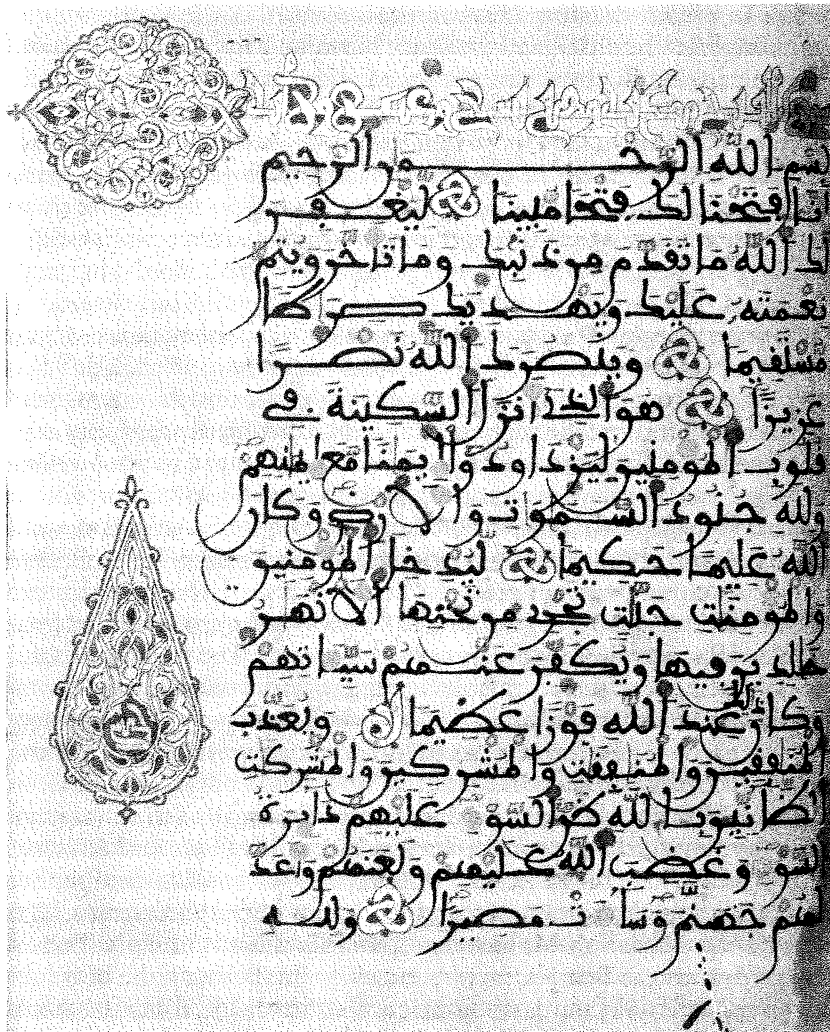 بسم الله الرحمن الرحيم
إنا فتحنا لك فتحا مبينا ليغفر
لك الله ما تقدم من ذنبك وما تأخر ويتم
نعمته عليك ويهديك صرطا
مستقيما وينصرك الله نصرا
عزيزا هو الذي أنزل السكينة في
قلوب المومنين ليزدادوا إيمنا مع إيمنهم
ولله جنود السموت والارض وكان
الله عليما حكيما ليدخل المومنين
والمومنت جنت تجري من تحتها الانهر
خلدين فيها ويكفر عنهم سيئاتهم
وكان ذلك عند الله فوزا عظيما ويعذب
المنفقين والمنفقت والمشركين والمشركت
الظانين بالله ظن السوء عليهم دايرة
السوء وغضب الله عليهم ولعنهم وأعد
لهم جهنم وساءت مصيرا ولله